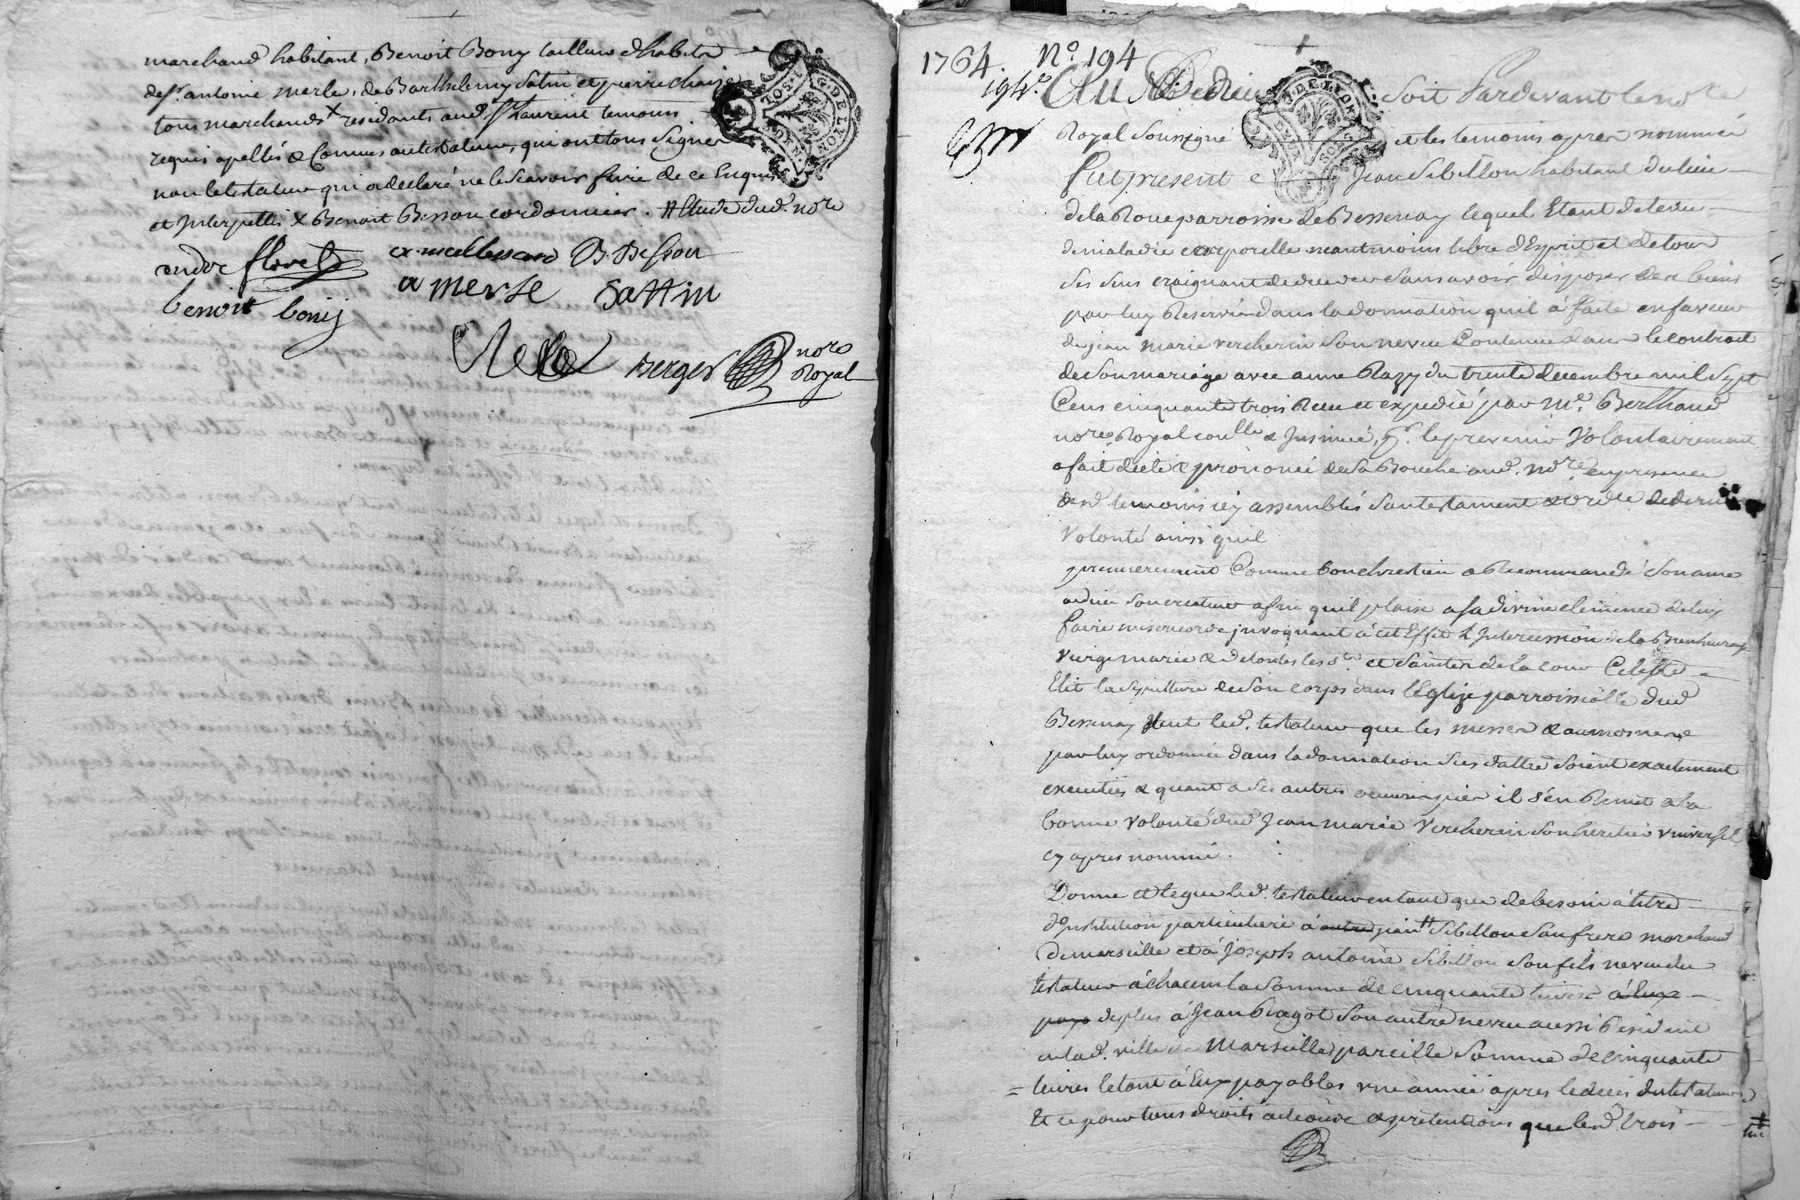 marchand habitant, Benoit Bony tailleur d'habits
de st antoine merle, de Barthelemy Satin et pierre chaize
tous marchands x residants aud. st Laurent temoins
requis apellés & Connus au testateur, qui ont tous Signer
non le testateur qui a declaré ne le Scavoir faire de ce Enquis
et Interpellé x Benoit Besson cordonnier. # Etude dud. nore
B. Besson
a merle Sattin
benoit bonij
Berger nore
Royal
G. DE LYON
1764. N° 194
194e
Au Nom de Dieu soit Pardevant le nore
Royal Soussigné et les temoins apres nommés
fut present Jean Sibillon habitant du lieu
de la Roue parroisse de Bessenay lequel Etant detenu
de maladie corporelle neantmoins libre d'Esprit et de tous
Ses Sens craignant de deceder Sans avoir disposer des biens
par luy Reservés dans la donnation quil à faite en faveur
de jean marie vercherin Son neveu Contenue dans le contrat
de Son mariage avec anne Razy du trente decembre mil Sept
Cens cinquante trois Recu et expedié par Me. Berthaud
nore Royal & Insinué, le prevenir Volontairement
a fait dicté & prononcé de Sa Bouche aud. nore en presence
desd. temoins icy assemblés Son testament & ordre de derniere
Volonté ainsi quil
premierement Comme bon chretien a Recommandé Son ame
a dieu Son createur afin quil plaise a Sa divine clemence de luy
faire misericorde invoquant à cet Effet l'Intercession de la Bienheureuse
Vierge marie & de toutes les Sts et Saintes de la cour Celeste
Elit la Sepulture de Son corps dans l'Eglize parroissiâlle dud
Bessenay Veut led. testateur que les messes & aumosnes
par luy ordonnée dans la donnation Sus dattée Soient exactement
executées & quant a Ses autres oeuvres pies il S'en Remet a la
bonne Volonté dud Jean marie Vercherin Son heretier vniversel
cy apres nommé.
Donne et legue led. testateur en tant que de besoin à titre
d'Institution particuliere à jean Sibillon Son frere marchand
de marseille et à Joseph antoine Sibillon Son fils neveu du
testateur à chacun la Somme de cinquante livres à Eux
paya de plus à Jean Son autre neveu aussi Resident
en lad. ville de Marseille pareille Somme de cinquante
livres letout à Eux payables vne année apres le deces du testateur
Et ce pour tous droits actions & pretentions que lesd. trois